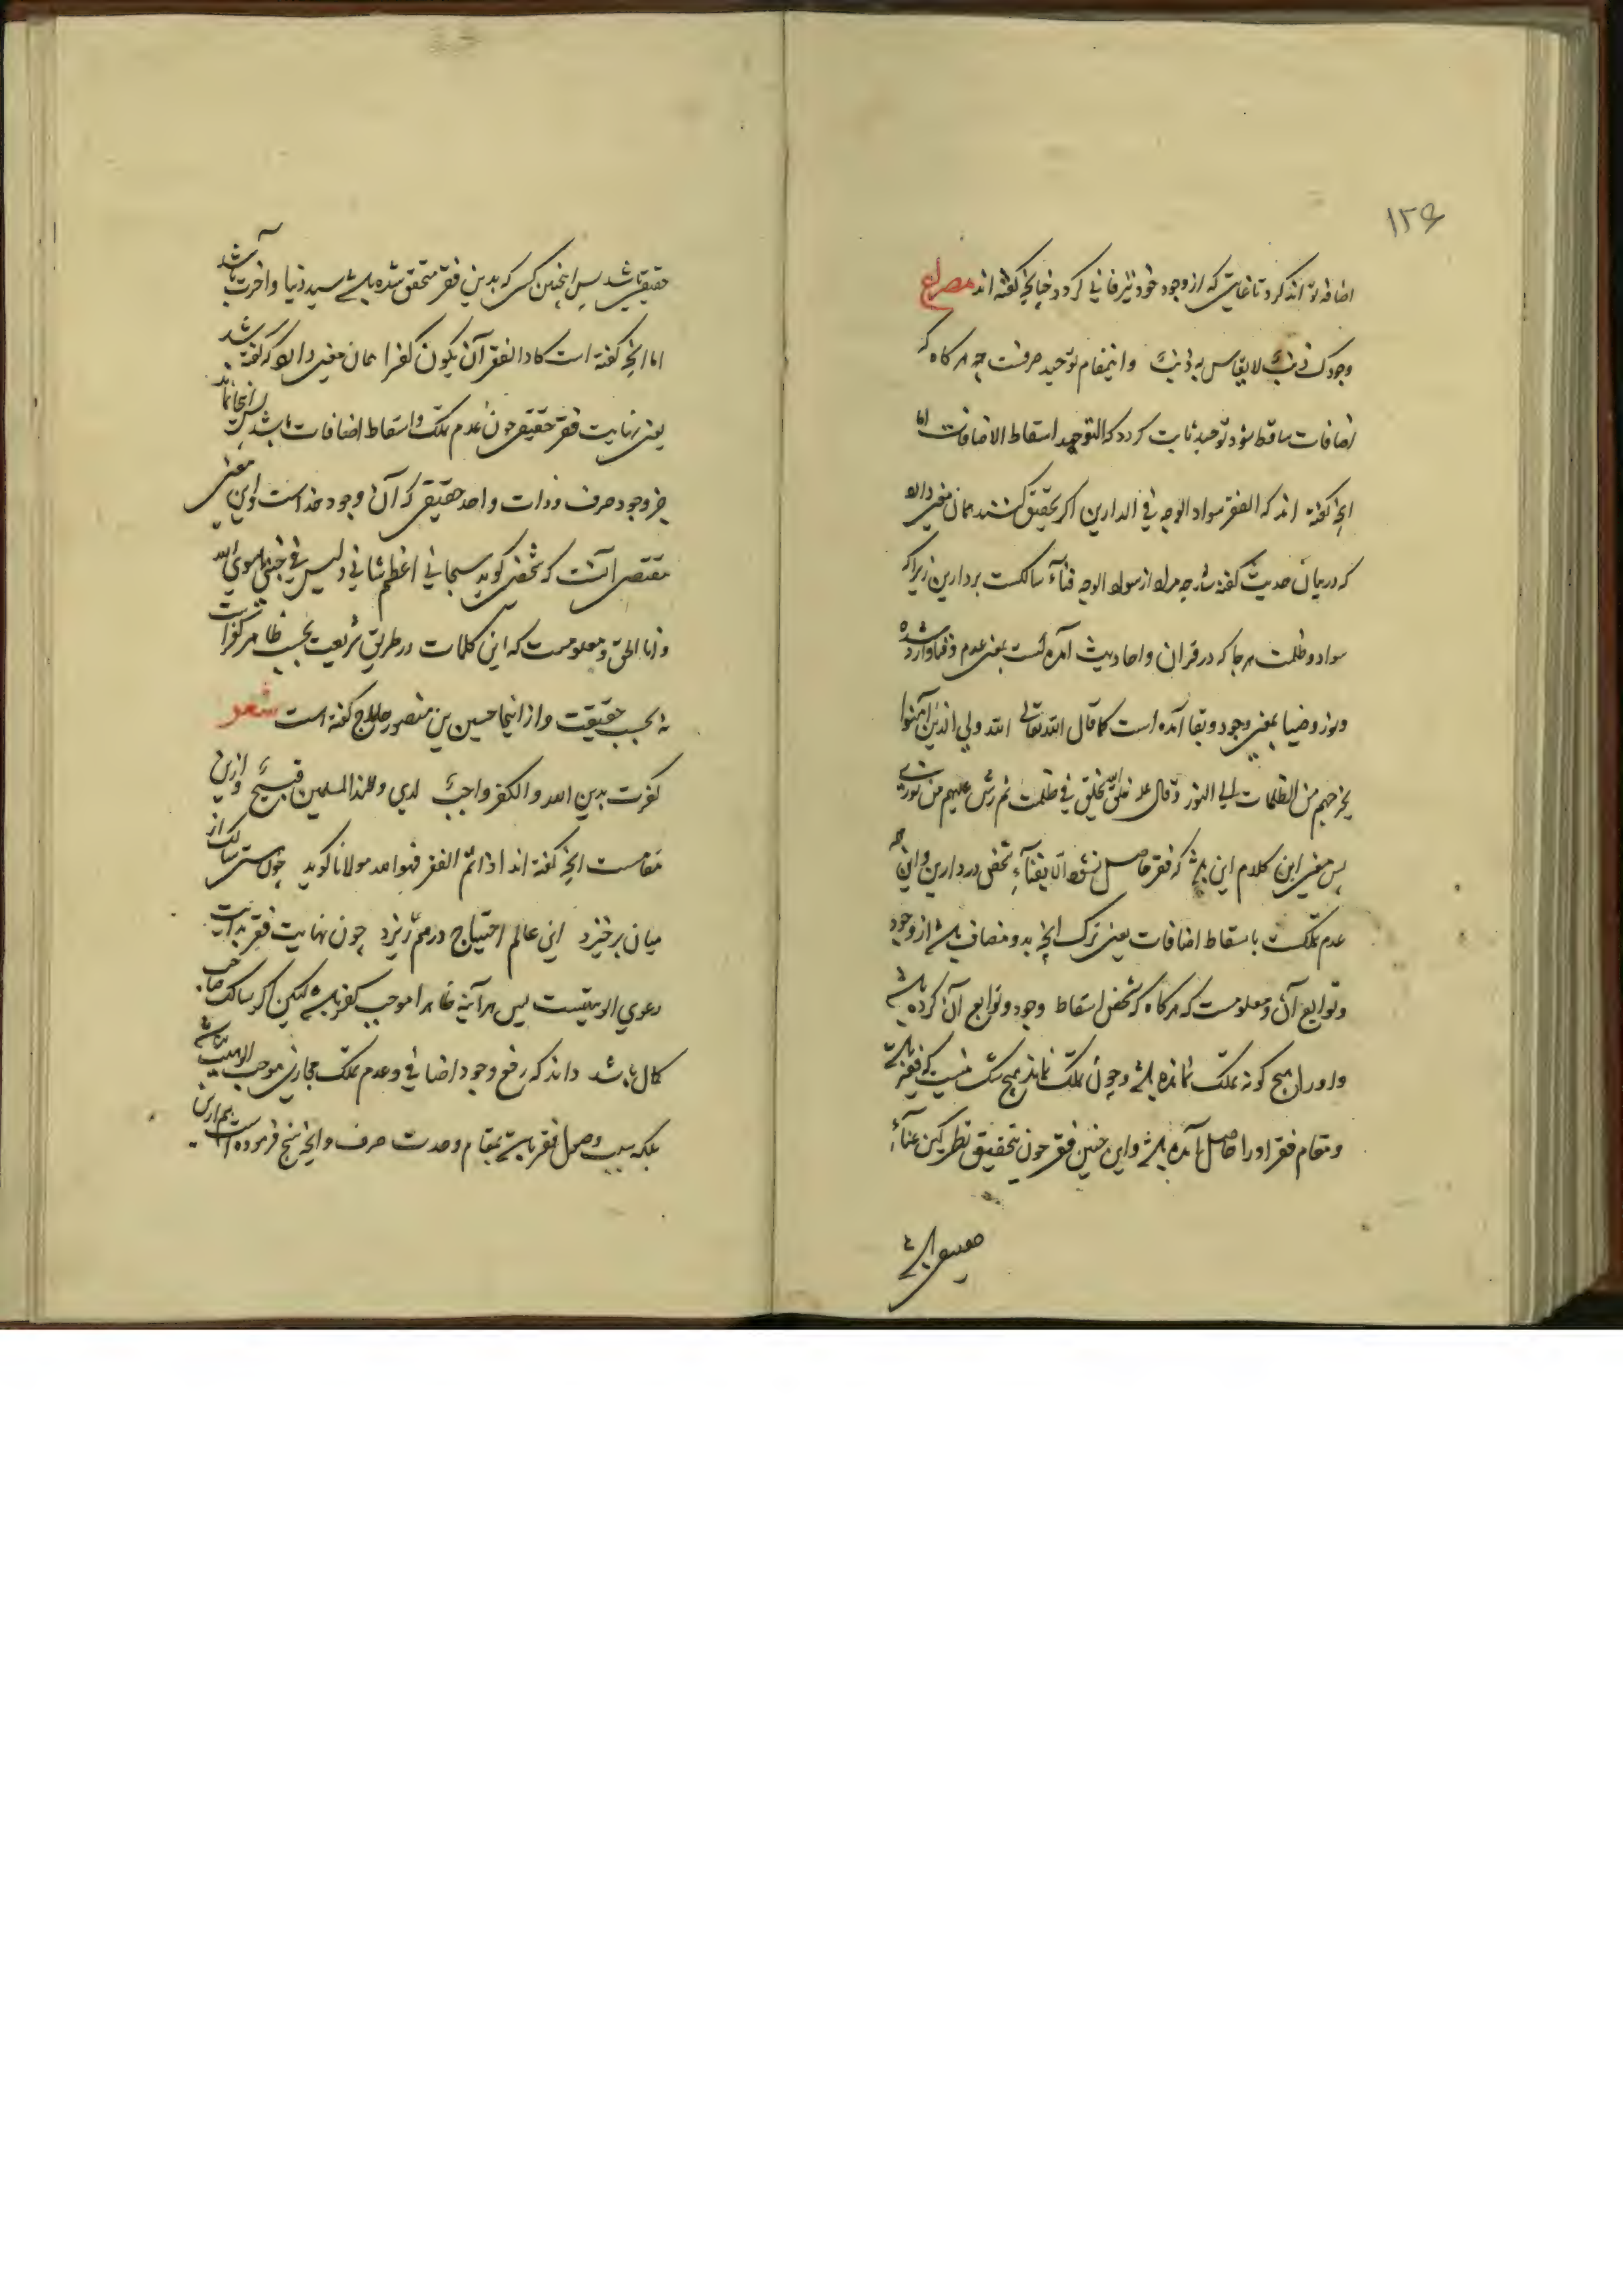 ۱۲۶
اضافه تواند کرد تا غایتی که از وجود خود نیز فانی گردد چنانچه گفته اند مصراع
وجودک ذنب لا یقاس به ذنب و اینمقام توحید صرفست چه هرگاه که
اضافات ساقط شود توحید ثابت گردد که التوحید اسقاط الاضافات اما
آنچه گفته اند که الفقر سواد الوجه فی الدارین اگر تحقیق کنند همان معنی دارد
که در بیان حدیث گفته شد چه مراد از سواد الوجه فناء سالکست بدارین زیرا که
سواد و ظلمت هرجا که در قران و احادیث آمده است بمعنی عدم و فنا وارد شده
و نور و ضیا بمعنی وجود و بقا آمده است کما قال الله تعالی الله ولی الذین آمنوا
یخرجهم من الظلمات الی النور و قال خلق الله الخلق فی ظلمت ثم رش علیهم من نوره
پس معنی این کلام این باشد که فقر حاصل نشود الا بفناء شخص در دارین و این
عدم تملکت باسقاط اضافات یعنی ترک آنچه بدو مضاف باشد از وجود
و توابع آن و معلومست که هرگاه که شخص اسقاط وجود و توابع آن کرده باشد
و او را هیچ گونه تملک نمانده باشد و چون تملک نماند هیچ شک نیست که فقیر باشد
و مقام فقر او را حاصل آمده باشد و این چنین فقر چون بتحقیق نظر کنی غناء
حقیقی باشد
حقیقی باشد پس اینچنین کسی که بدین فقر متحقق شده باشد سید دنیا و آخرت باشد
اما آنچه گفته است کاد الفقر آن یکون کفرا همان معنی دارد که گفته شد
یعنی نهایت فقر حقیقی چون عدم تملک و اسقاط اضافات باشد پس آنجا نماند
جز وجود صرف و ذات واحد حقیقی که آن وجود خداست و این معنی
مقتضی آنست که شخص گوید سبحانی ما اعظم شانی و لیس فی جبتی سوی الله
و انا الحق و معلومست که این کلمات در طریق شریعت بحسب ظاهر کفر است
نه بحسب حقیقت و از اینجا حسین بن منصور حلاج گفته است شعر
کفرت بدین الله و الکفر واجب لدی و عند المسلمین قبیح و ازین
مقامست آنچه گفته اند اذا تم الفقر فهو الله مولانا گوید چون هستی سالک از
میان برخیزد این عالم احتیاج درهم ریزد چون نهایت فقر بدایت
دعوی الوهیتست پس هر آینه ظاهرا موجب کفر باشد لیکن اگر سالک صاحب
کمال باشد داند که رفع وجود اضافی و عدم تملک مجازی موجب الوهیت نباشد
بلکه سبب وصول فقر باشد بمقام وحدت صرف و آنچه شیخ فرموده است هم ازین